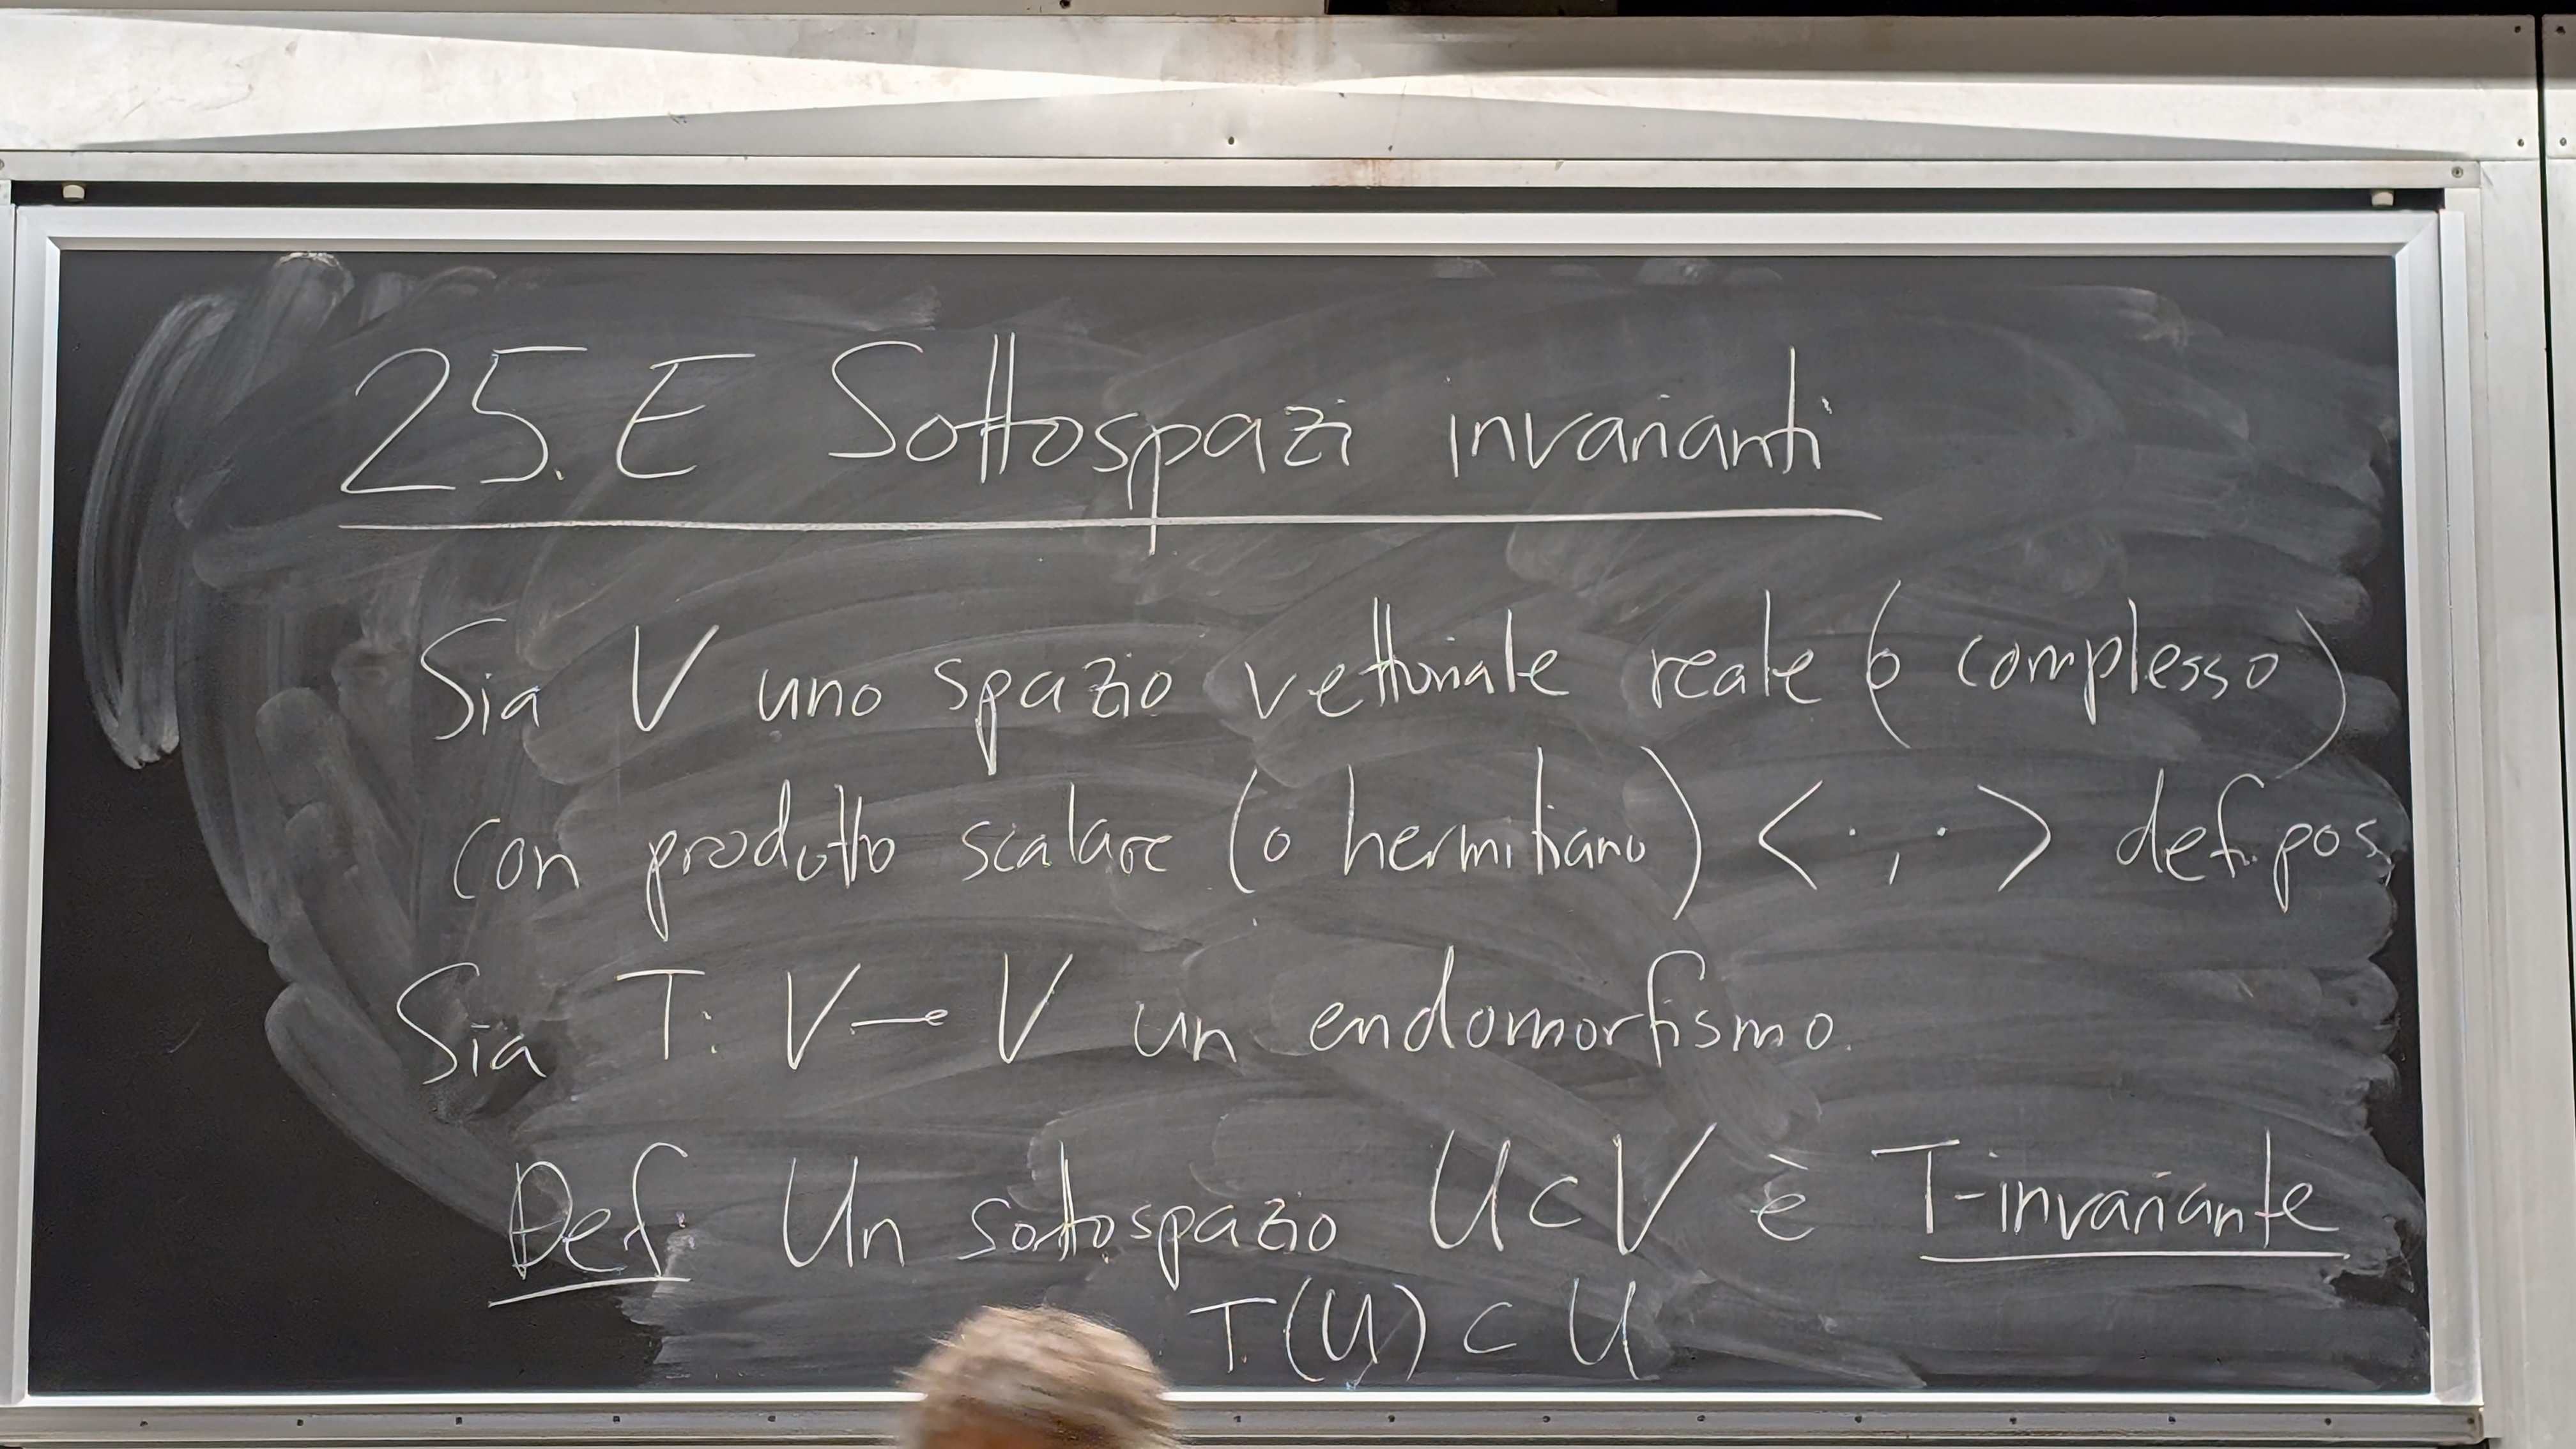 25.E Sottospazi invarianti
Sia V uno spazio vettoriale reale (o complesso)
con prodotto scalare (o hermitiano) < · , · > def. pos.
Sia T: V → V un endomorfismo.
Def: Un sottospazio U ⊂ V è T-invariante
T(U) ⊂ U